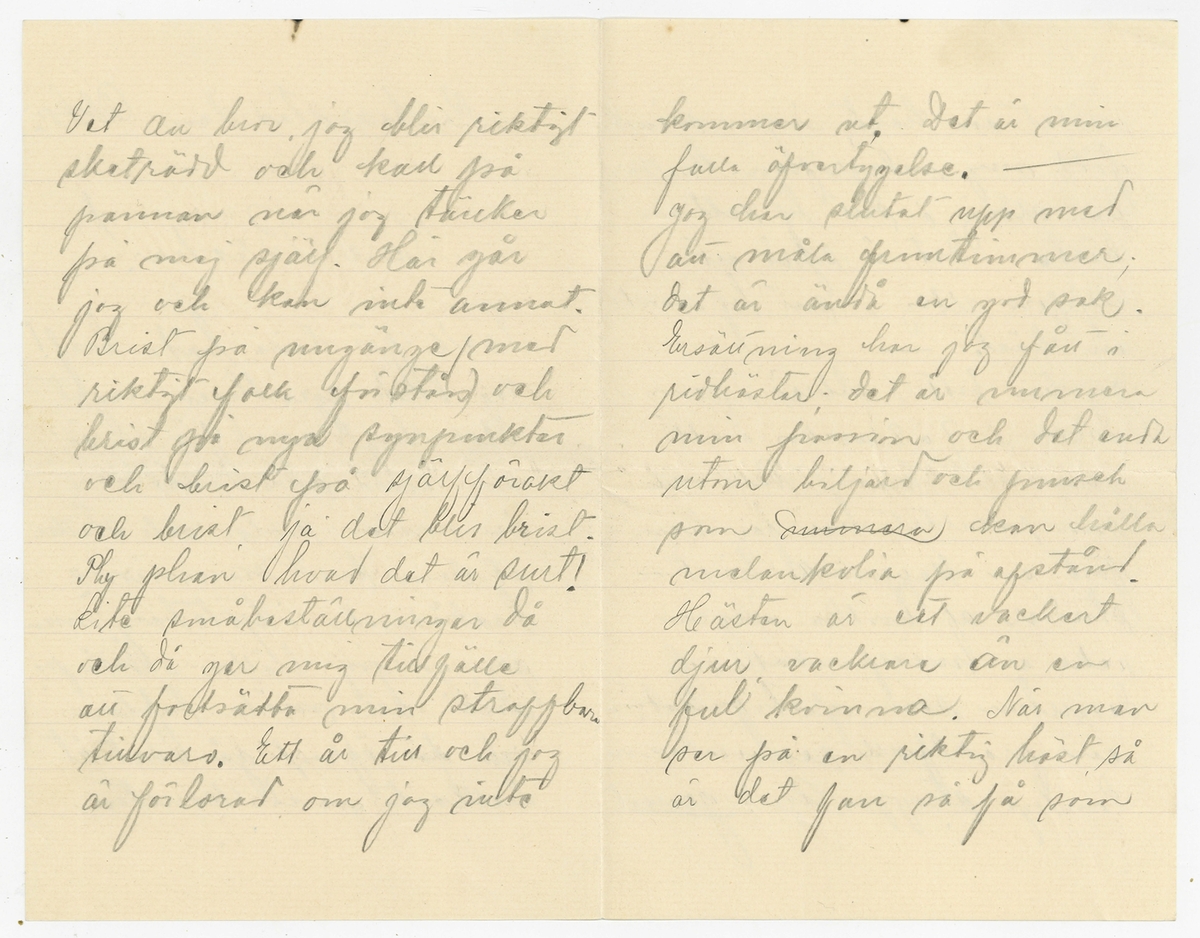 Vet du bror, jag blir riktigt
skaträdd och kall på
pannan när jag tänker
på mig själf. Här går
jag och kan inte annat.
Brist på umgänge (med
riktigt folk förstås) och
brist på nya synpunkter
och brist på själfförakt
och brist, ja det blir brist.
Phy phan hvad det är surt!
Lite småbeställningar då
och då ger mig tillfälle
att fortsätta min straffbara
tillvaro. Ett år till och jag
är förlorad om jag inte
kommer ut. Det är min
fulla öfvertygelse. —
Jag har slutat upp med
att måla fruntimmer;
det är ändå en god sak.
Ersättning har jag fått i
ridhästar; det är numera
min passion och det enda
utom biljard och punsch
som numera kan hålla
melankolia på afstånd.
Hästen är ett vackert
djur, vackrare än en
ful kvinna. När man
ser på en riktig häst, så
är det fan så få som